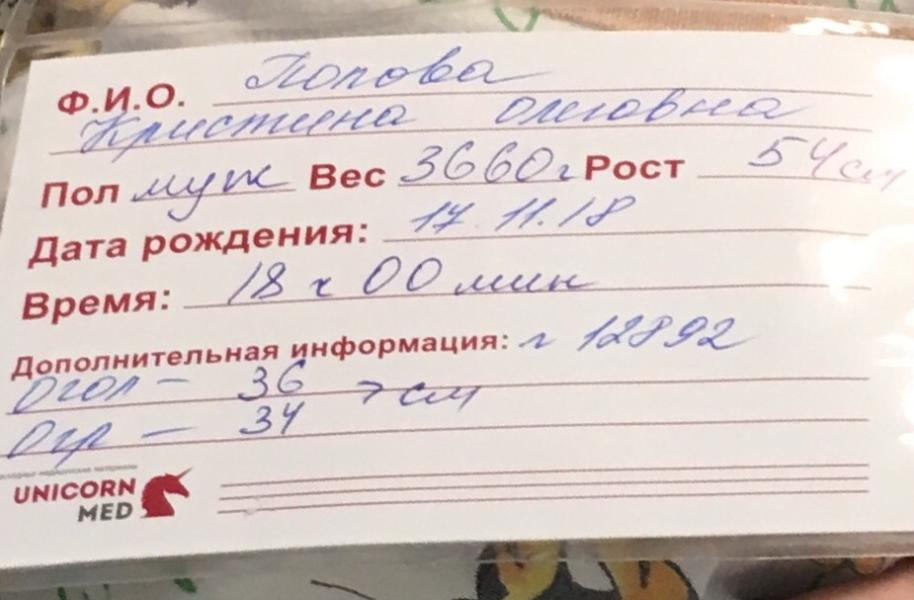 Ф.И.О. Попова
Кристина Олеговна
Пол муж Вес 3660г Рост 54см
Дата рождения: 17.11.18
Время: 18 ч 00 мин
Дополнительная информация: 12892
Огол – 36 > см
Огр – 34
UNICORN
MED